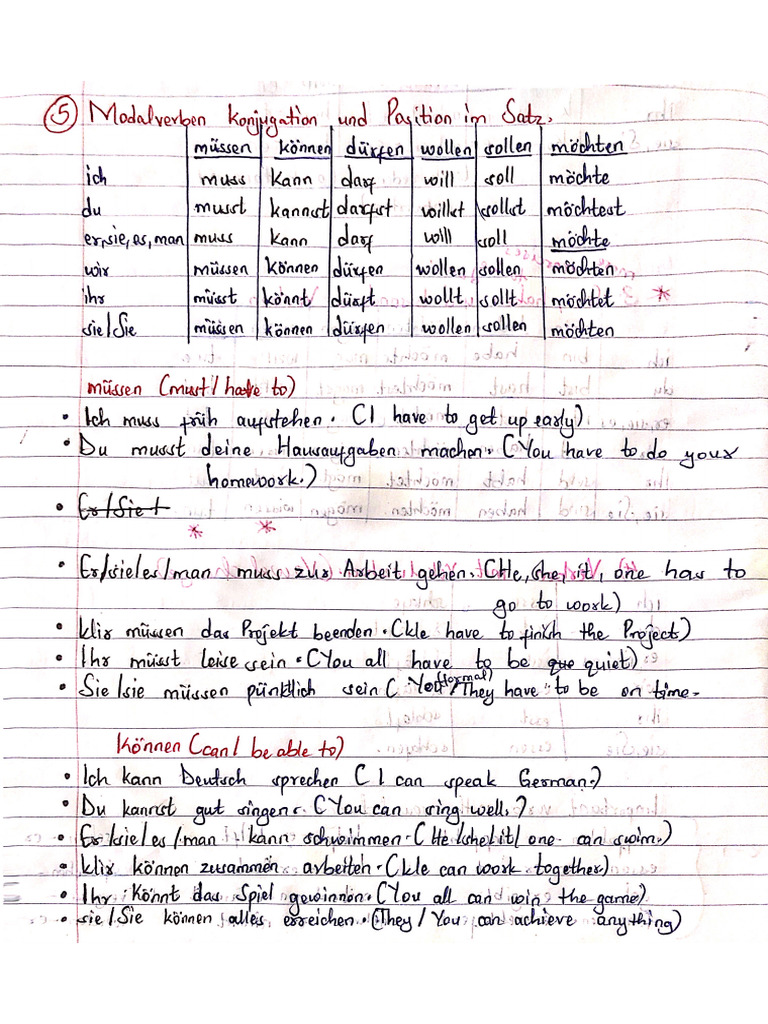 ⑤ Modalverben Konjugation und Position im Satz.
müssen können dürfen wollen sollen möchten
ich muss kann darf will soll möchte
du musst kannst darfst willst sollst möchtest
er,sie,es,man muss kann darf will soll möchte
wir müssen können dürfen wollen sollen möchten
ihr müsst könnt dürft wollt sollt möchtet *
sie/Sie müssen können dürfen wollen sollen möchten
müssen (must/have to)
• Ich muss früh aufstehen. (I have to get up early)
• Du musst deine Hausaufgaben machen. (You have to do your
homework.)
• Er/Sie/
* *
• Er/sie/es/man muss zur Arbeit gehen. (He, she, it, one has to
go to work)
• Wir müssen das Projekt beenden. (We have to finish the Project.)
• Ihr müsst leise sein. (You all have to be que quiet)
• Sie/sie müssen pünktlich sein (You(formal)/They have to be on time.
können (can/be able to)
• Ich kann Deutsch sprechen (I can speak German.)
• Du kannst gut singen. (You can sing well.)
• Er/sie/es/man kann schwimmen. (He/she/it/one can swim.)
• Wir können zusammen arbeiten. (We can work together)
• Ihr könnt das Spiel gewinnen. (You all can win the game)
• sie/Sie können alles erreichen. (They/You can achieve anything)